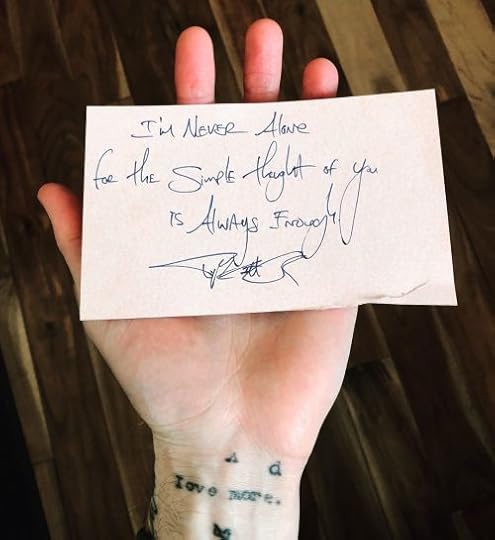 I'm Never Alone
for the Simple thought of you
is Always Enough
A d
love more.